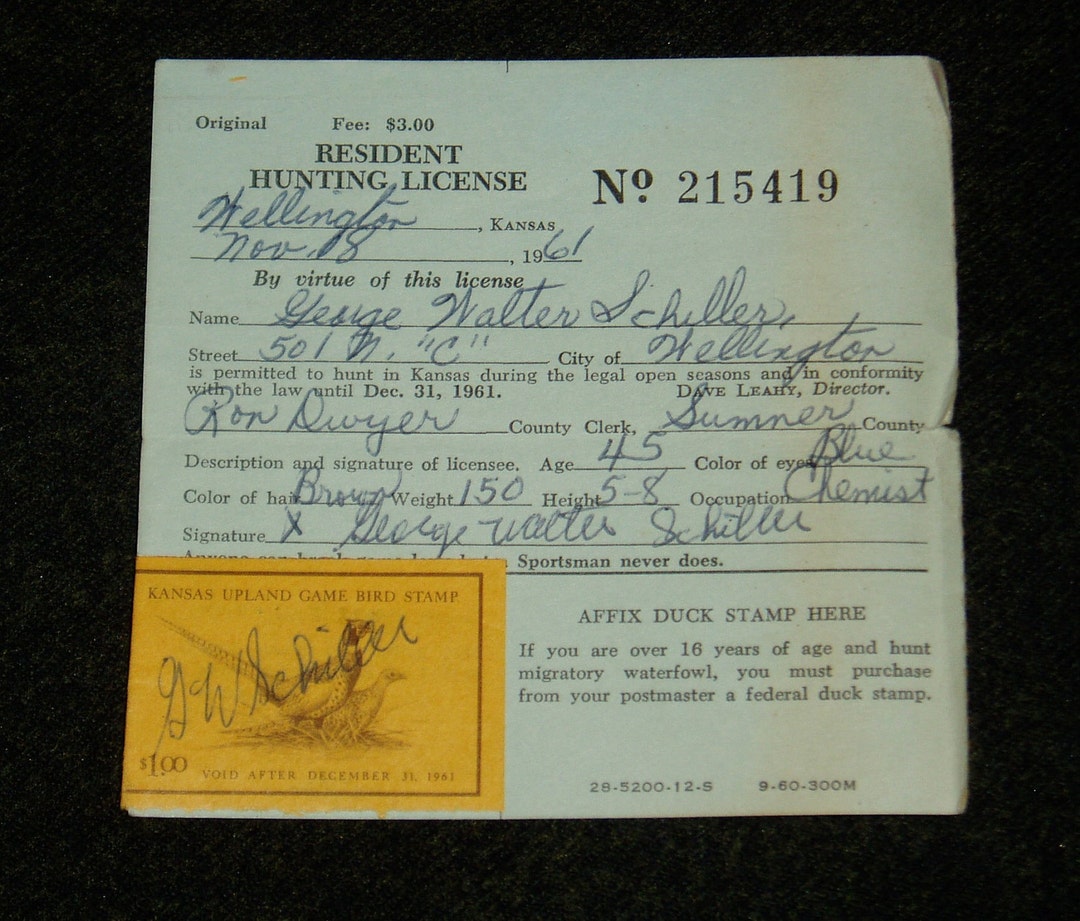 Original Fee: $3.00
RESIDENT
HUNTING LICENSE
Nº 215419
Wellington, KANSAS
Nov. 18, 1961
By virtue of this license
Name George Walter Schiller,
Street 501 N. "C" City of Wellington
is permitted to hunt in Kansas during the legal open seasons and in conformity
with the law until Dec. 31, 1961. DAVE LEAHY, Director.
Ron Dwyer County Clerk, Sumner County
Description and signature of licensee. Age 45 Color of eyes Blue
Color of hair Brown Weight 150 Height 5-8 Occupation Chemist
Signature X George Walter Schiller
Sportsman never does.
KANSAS UPLAND GAME BIRD STAMP
G W Schiller
$1.00 VOID AFTER DECEMBER 31, 1961
AFFIX DUCK STAMP HERE
If you are over 16 years of age and hunt
migratory waterfowl, you must purchase
from your postmaster a federal duck stamp.
28-5200-12-S 9-60-300M